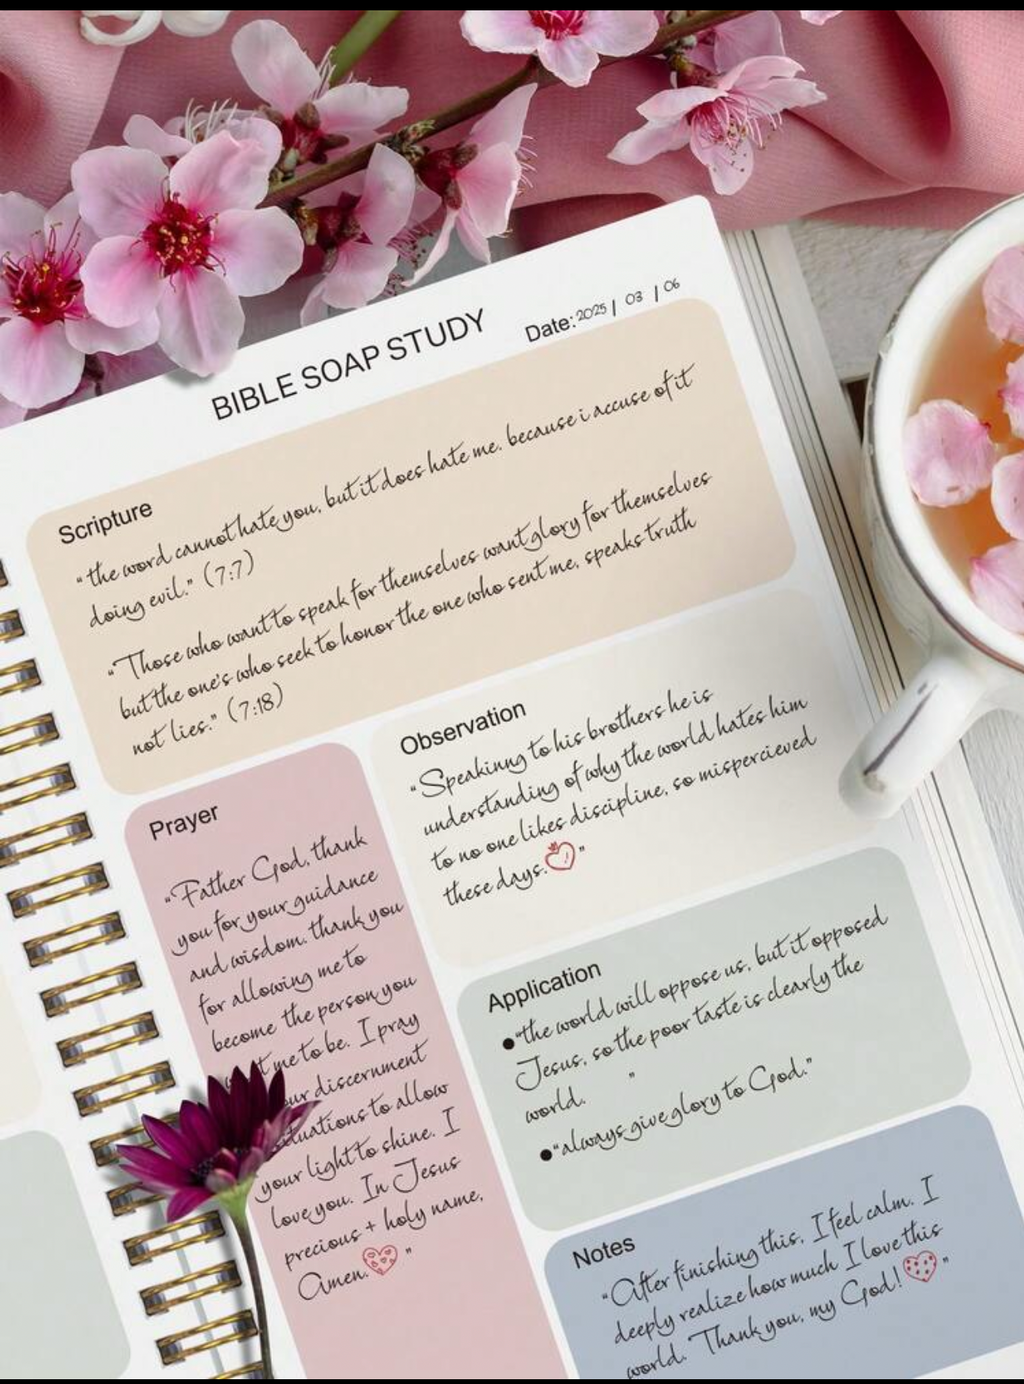 BIBLE SOAP STUDY
Date: 2025 / 03 / 06
Scripture
"the word cannot hate you, but it does hate me. because i accuse of it
doing evil." (7:7)
"Those who want to speak for themselves want glory for themselves
but the one's who seek to honor the one who sent me, speaks truth
not lies." (7:18)
Observation
"Speakinng to his brothers he is
understanding of why the world hates him
to no one likes discipline, so mispercieved
these days. "
Prayer
"Father God, thank
you for your guidance
and wisdom. thank you
for allowing me to
become the person you
me to be. I pray
discernment
to allow
your light to shine. I
love you. In Jesus
precious + holy name,
Amen. "
Application
● "the world will oppose us, but it opposed
Jesus, so the poor taste is clearly the
world. "
● "always give glory to God."
Notes
"After finishing this, I feel calm. I
deeply realize how much I love this
world. Thank you, my God! "